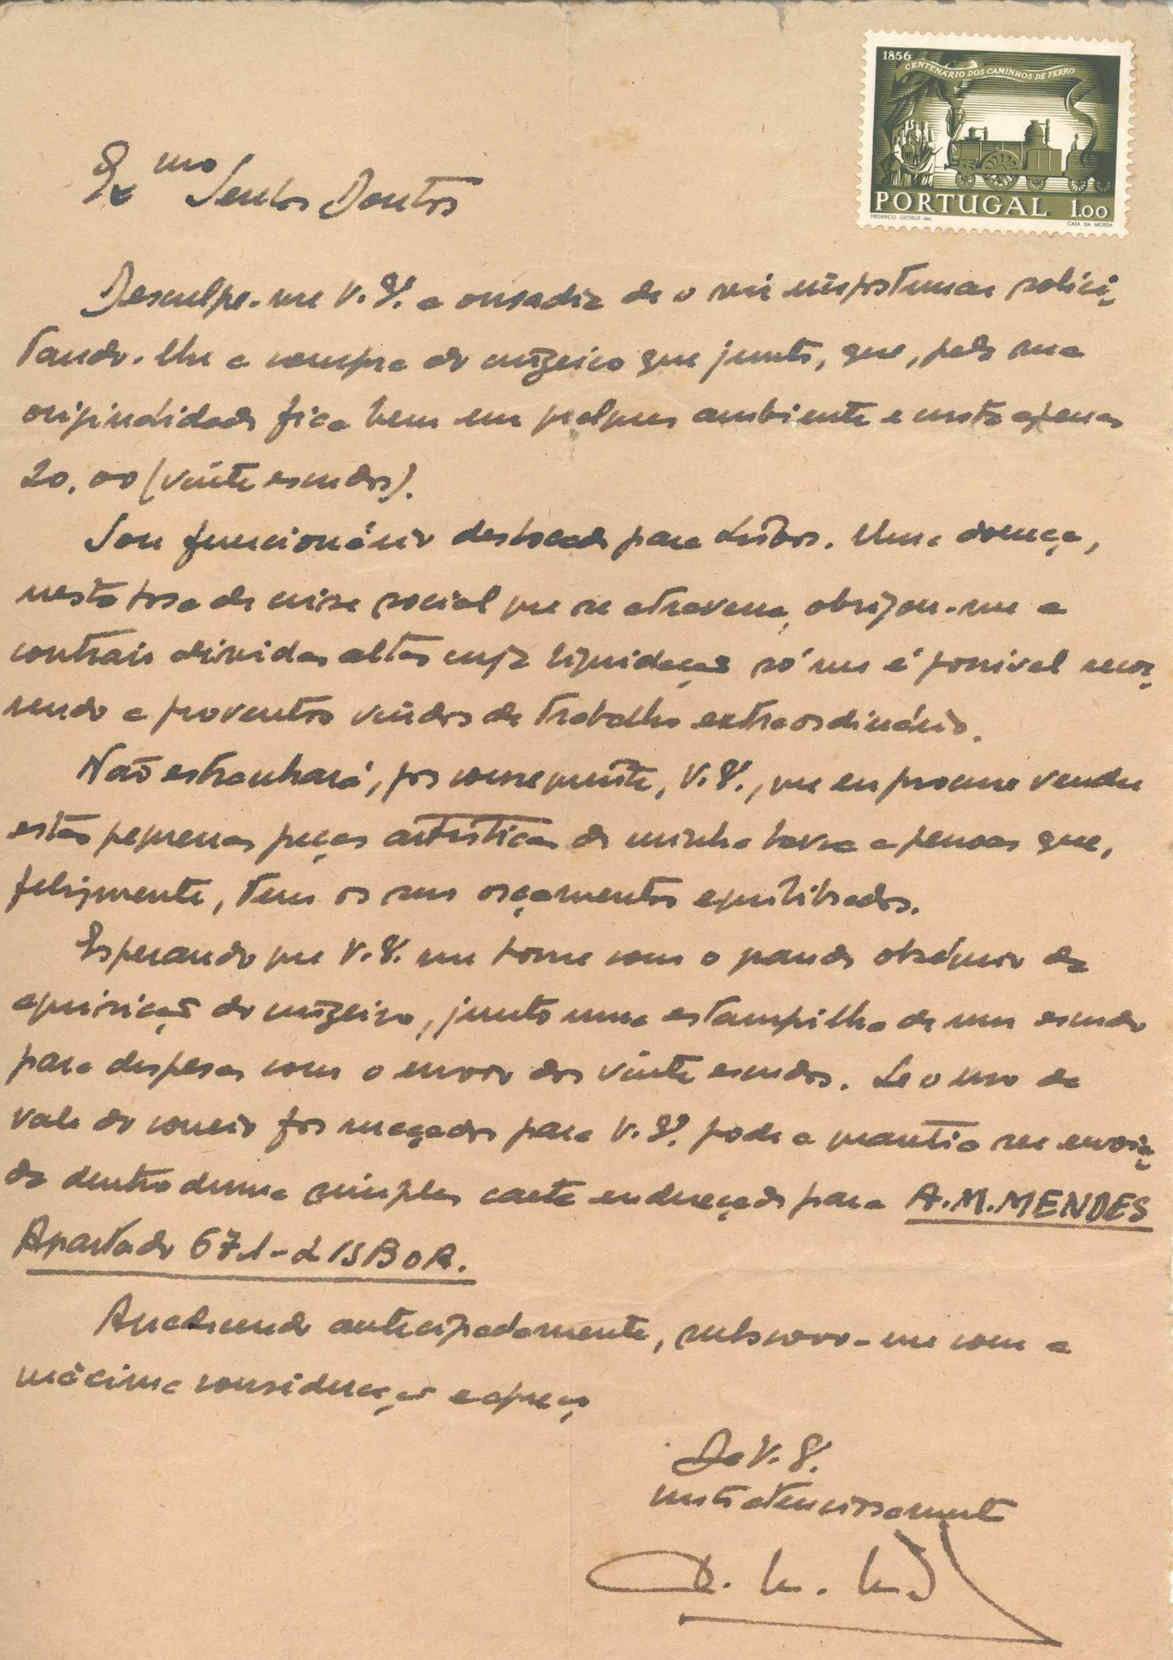 1856
CENTENÁRIO DOS CAMINHOS DE FERRO
PORTUGAL 1.00
CASA DA MOEDA
Exmo Senhor Doutor
Desculpe-me V. Ex. a ousadia de o vir importunar solici-
tando-lhe a compra do cinzeiro que junto, que, pela sua
originalidade fica bem em qualquer ambiente e custa apenas
20,00 (vinte escudos).
Sou funcionário deslocado para Lisboa. Uma doença,
nesta hora de crise social que se atravessa, obrigou-me a
contrair dívidas altas cuja liquidação só me é possível recor-
rendo a proventos vindos de trabalho extraordinário.
Não estranhará, por conseguinte, V. Ex., que eu procure vender
estas pequenas peças artísticas de minha lavra a pessoas que,
felizmente, têm os seus orçamentos equilibrados.
Esperando que V. Ex. me honre com o grande obséquio da
aquisição do cinzeiro, junto uma estampilha de um escudo
para despesas com o envio dos vinte escudos. Se o uso de
vale do correio for maçador para V. Ex. pode a quantia ser envia-
da dentro duma simples carta endereçada para A. M. MENDES
Apartado 671 - LISBOA.
Agradecendo antecipadamente, subscrevo-me com a
máxima consideração e apreço
De V. Ex.
muito atenciosamente